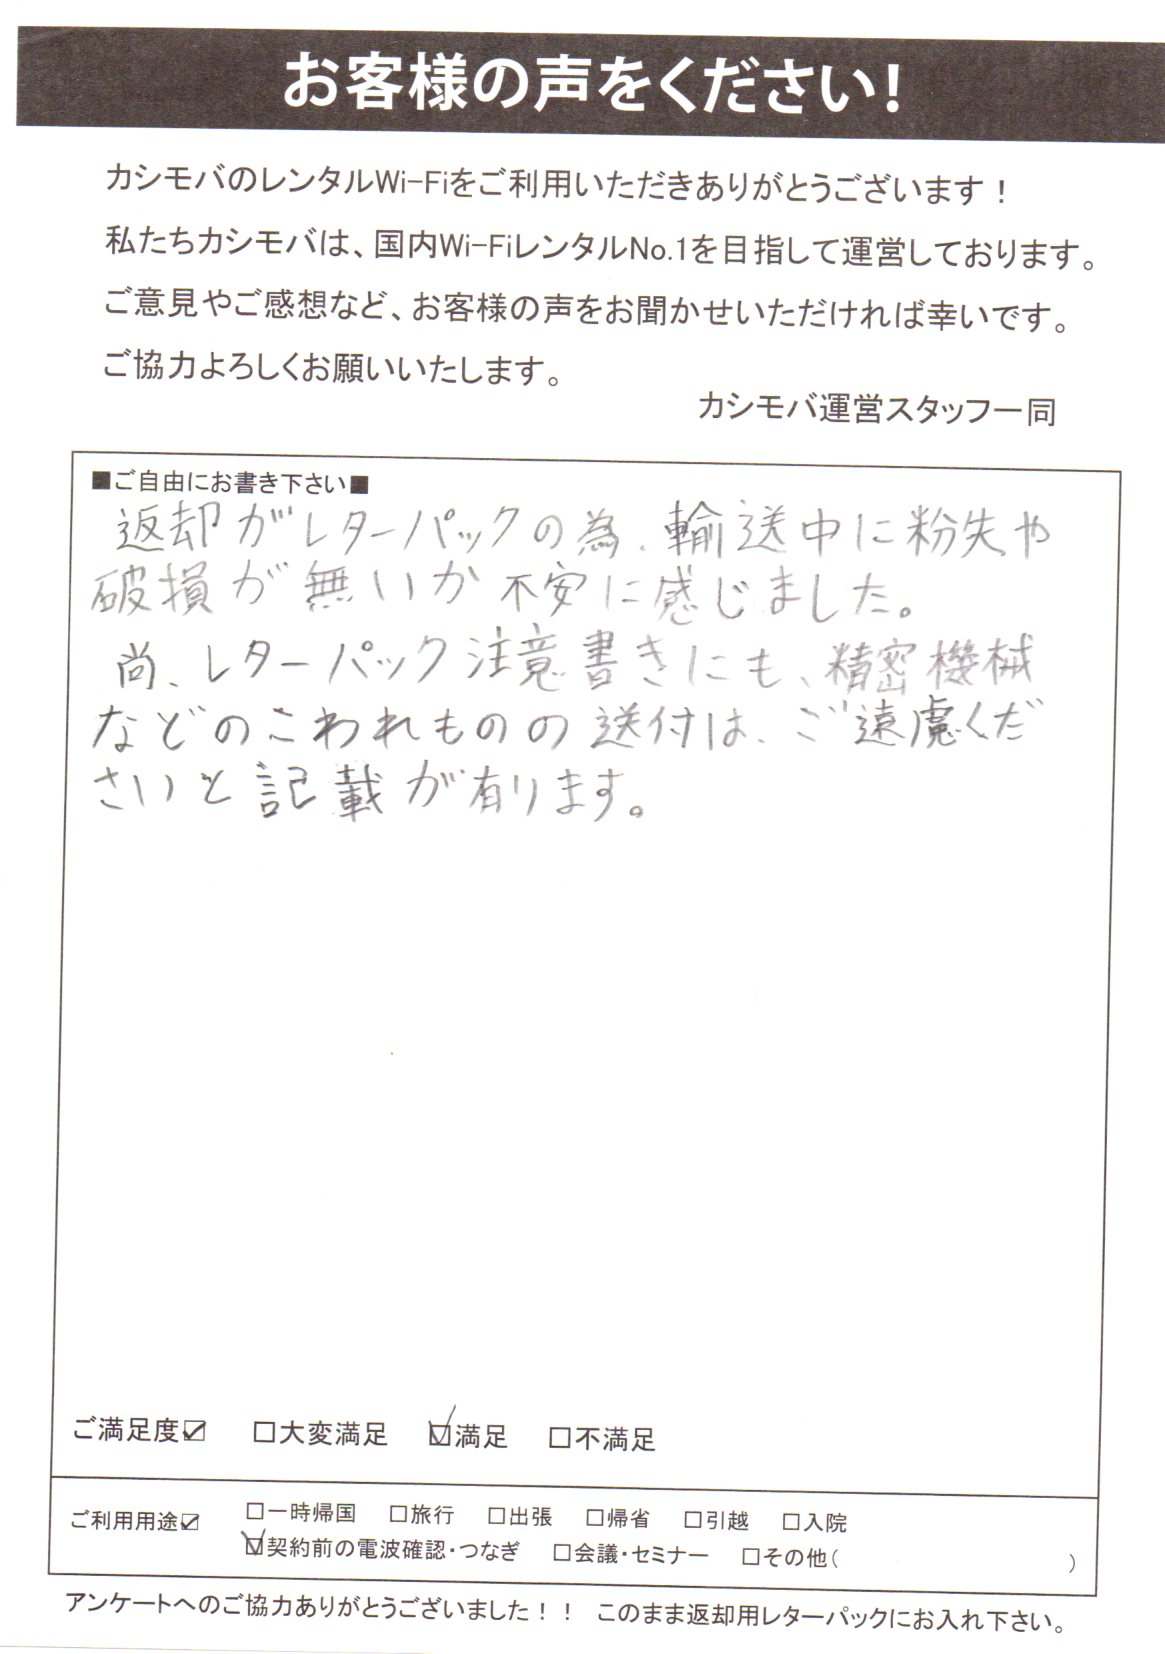 お客様の声をください!
カシモバのレンタルWi-Fiをご利用いただきありがとうございます！
私たちカシモバは、国内Wi-FiレンタルNo.1を目指して運営しております。
ご意見やご感想など、お客様の声をお聞かせいただければ幸いです。
ご協力よろしくお願いいたします。
カシモバ運営スタッフ一同
■ご自由にお書き下さい■
返却がレターパックの為、輸送中に粉失や
破損が無いか不安に感じました。
尚、レターパック注意書きにも、精密機械
などのこわれものの送付は、ご遠慮くだ
さいと記載が有ります。
ご満足度☑ □大変満足 ☑満足 □不満足
ご利用用途☑ □一時帰国 □旅行 □出張 □帰省 □引越 □入院
☑契約前の電波確認・つなぎ □会議・セミナー □その他( )
アンケートへのご協力ありがとうございました！！ このまま返却用レターパックにお入れ下さい。